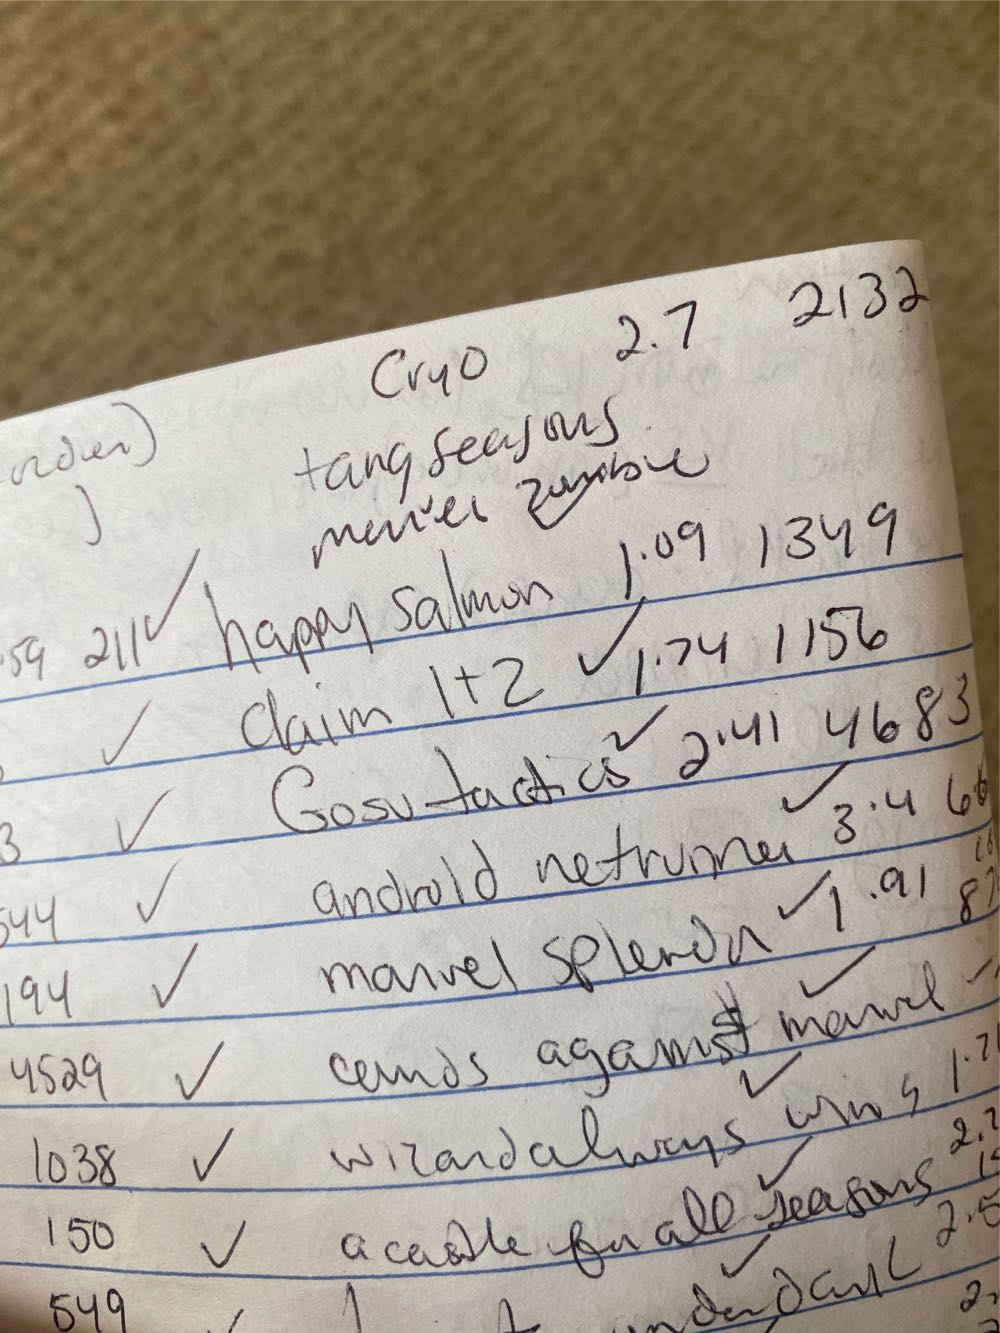 Cryo 2.7 2132
order) tang seasons
) marvel zombie
.59 211 ✓ happy salmon 1.09 1349
✓ claim 1+2 ✓ 1.74 1156
3 ✓ Gosu tactics ✓ 2.41 4683
544 ✓ android netrunner ✓ 3.4
194 ✓ marvel splendor ✓ 1.91
4529 ✓ cards against marvel ✓
1038 ✓ wizard always wins ✓
150 ✓ a castle for all seasons ✓
549